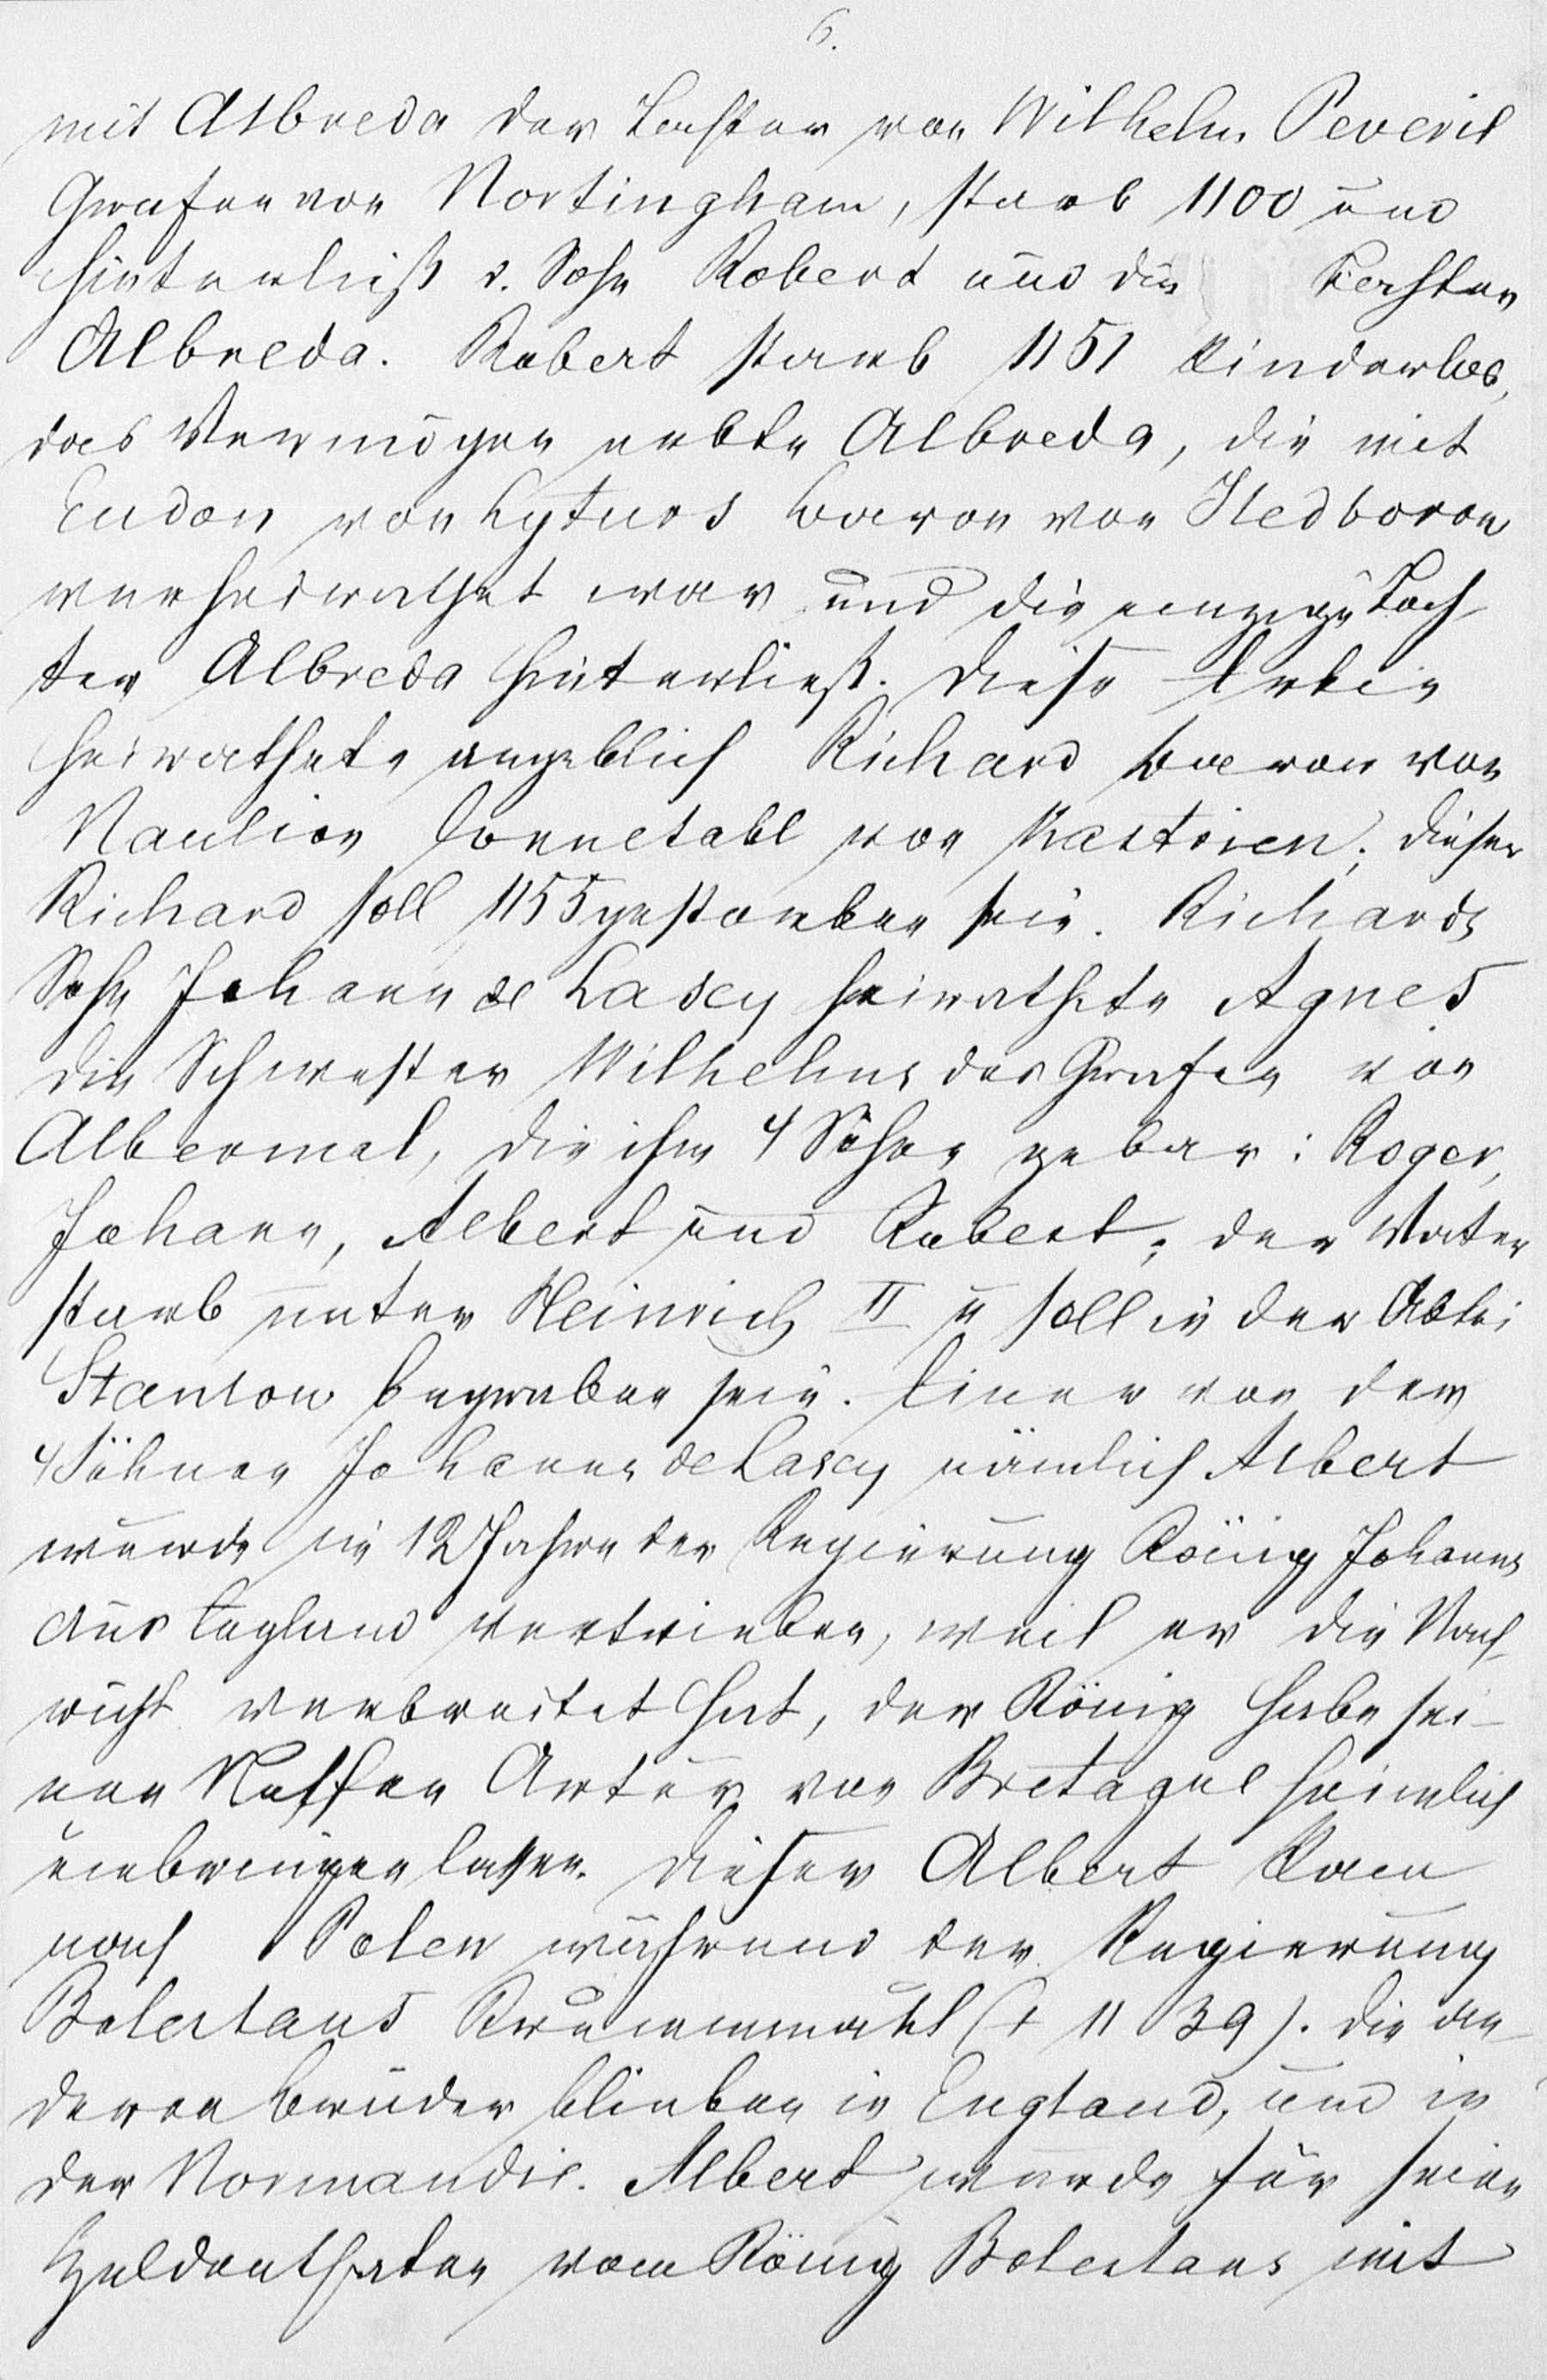 6.
mit Albreda der Tochter von Wilhelm Peveril
Grafen von Nortingham, starb 1100 und
hinterließ d. Sohn Robert und die Tochter
Albreda. Robert starb 1151 kinderlos,
das Vermögen erbte Albreda, die mit
Eudon von Lyturs Baron von Hedboron
verheirathet war und die einzige Toch-
ter Albreda hinterließ. Diese Erbin
heirathete angeblich Richard Baron von
Naulion Connetabl von Kastrien; dieser
Richard soll 1155 gestorben sein. Richards
Sohn Johann de Lascy heirathete Agnes
die Schwester Wilhelms des Grafen von
Albermal, die ihm 4 Söhne gebar: Roger,
Johann, Albert und Robert; der Vater
starb unter Heinrich II u soll in der Abtei
Stanlow begraben sein. Einer von den
4 Söhnen Johanns de Lascy nämlich Albert
wurde im 12 Jahre der Regierung König Johanns
aus England vertrieben, weil er die Nach-
richt verbreitet hat, der König habe sei-
nen Neffen Artur von Bretagne heimlich
umbringen lassen. Dieser Albert kam
nach Polen während der Regierung
Boleslaus Krummmaul († 1139). Die an-
deren Brüder blieben in England, und in
der Normandie. Albert wurde für seine
Heldenthaten vom König Boleslaus mit